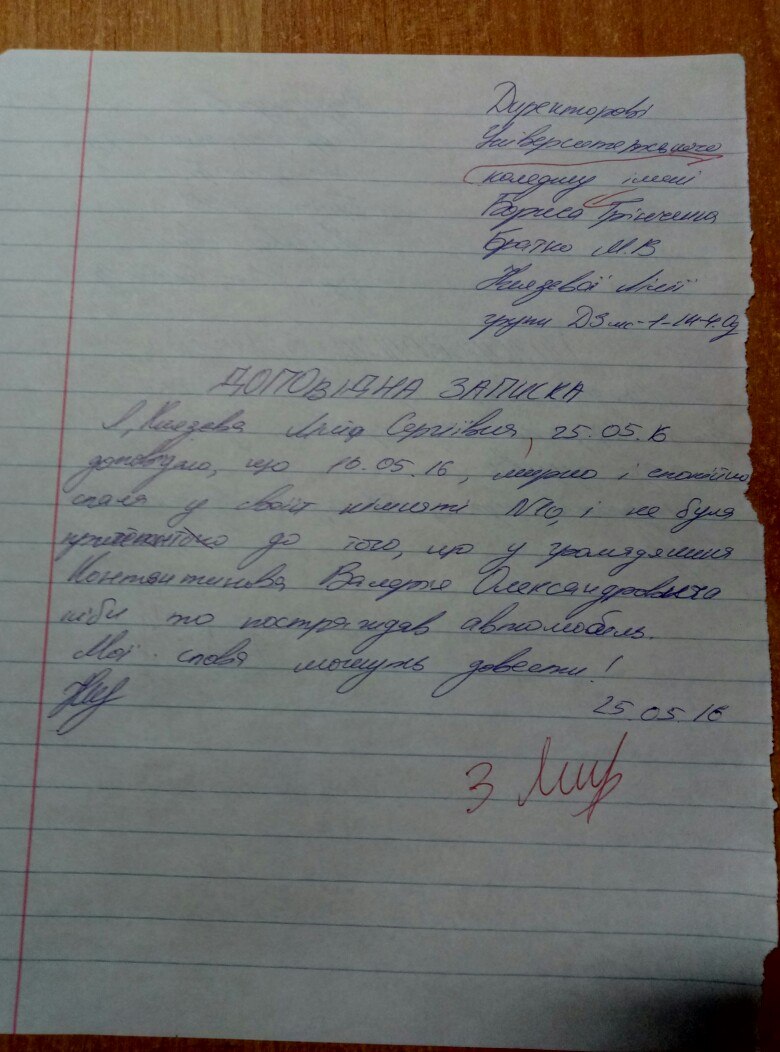 Директорові
Університетського
коледжу імені
Бориса Грінченка
Братко М.В
Князєвої Лілії
групи
ДОПОВІДНА ЗАПИСКА
Я, Князєва Лілія Сергіївна, 25.05.16
доповідаю, що 16.05.16, мирно і спокійно
спала у своїй кімнаті №10, і не була
до того, що у громадянина
Валерія Олександровича
ніби то постраждав автомобіль.
Мої слова можуть довести!
25.05.16
3